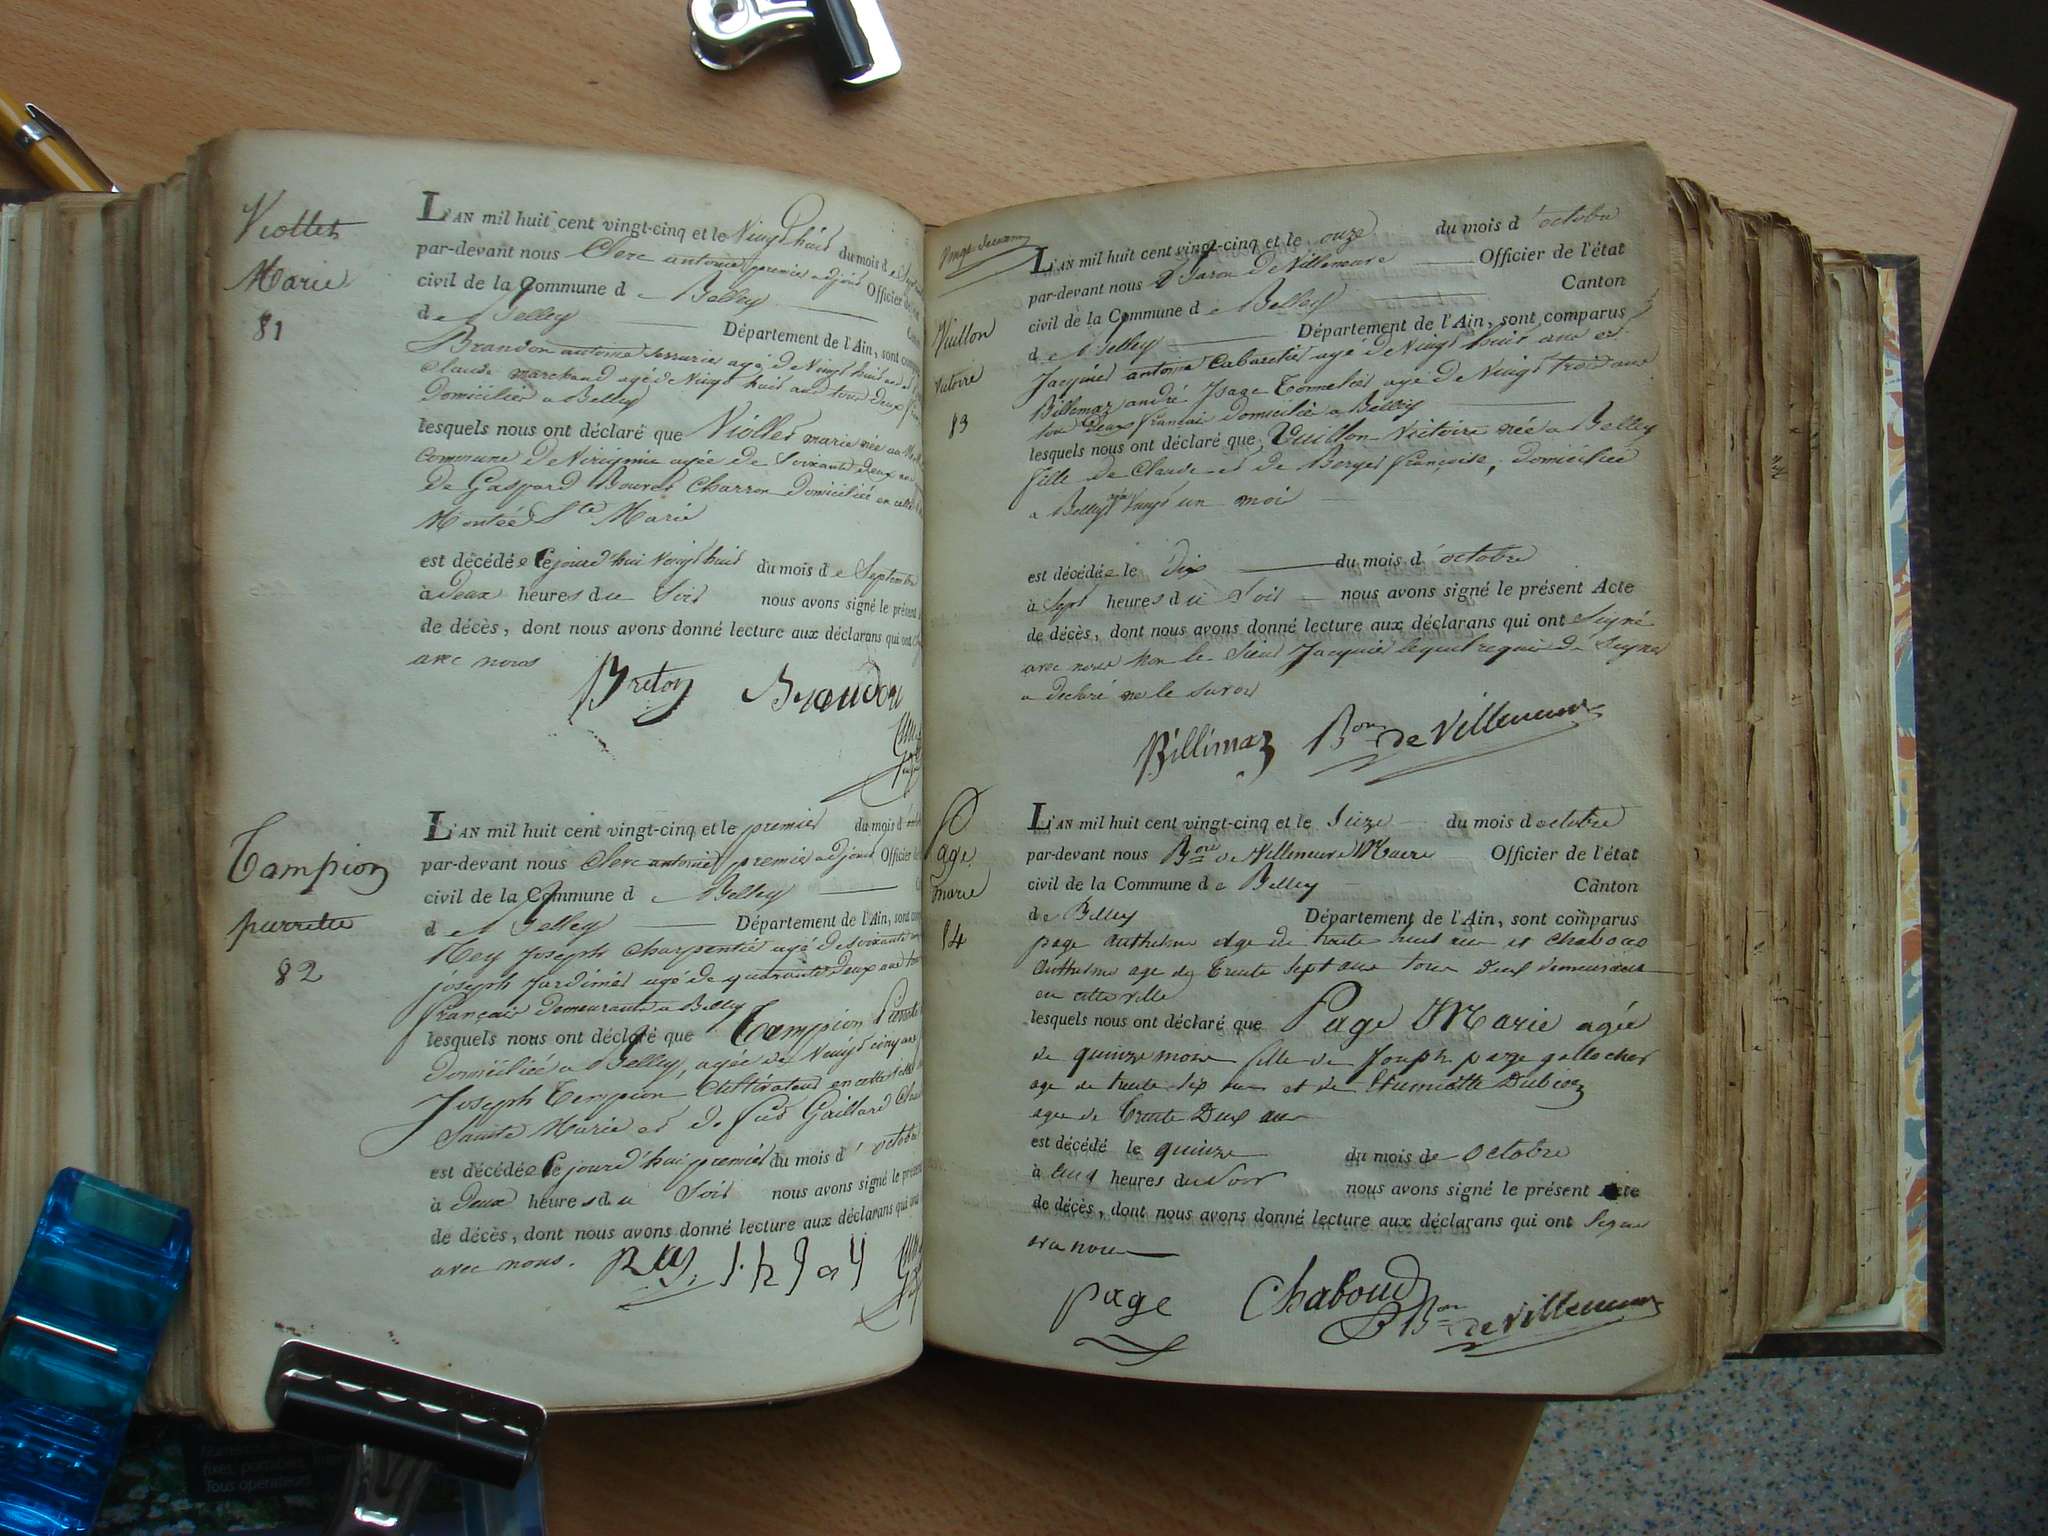 Viollet
Marie
81
L'AN mil huit cent vingt-cinq et le Vingt huit du mois de Sept
par-devant nous Clerc antoine premier adjoint Officier
civil de la Commune d e Belley
d e Belley Département de l'Ain, sont comp
Brandon antoine Serrurier agé de Vingt huit ans et
Claude marchand agé de Vingt huit ans tous deux
Domiciliés a Belley
lesquels nous ont déclaré que Viollet marie née au
Commune De Virignin agée de Soixante deux ans
De Gaspard Bouvet Charron Domiciliée en cette
Montée Ste Marie
est décédée Cejourd'hui Vingt huit du mois de Septembre
à deux heures du Soir nous avons signé le présent
de décès, dont nous avons donné lecture aux déclarans qui ont
avec nous
Breton Brandon
Tampion
pierrette
82
L'AN mil huit cent vingt-cinq et le premier du mois d'
par-devant nous Clerc antoine premier adjoint Officier
civil de la Commune d e Belley
d e Belley Département de l'Ain, sont
Rey Joseph Charpentier agé de Soixante
joseph Jardinier agé de quarante Deux ans
français Demeurants a Belley
lesquels nous ont déclaré que Tampion
Domiciliée a Belley, agée de Vingt cinq ans
Joseph Tempion Cultivateur en cette
Sainte Marie et De feue Gaillard
est décédée Cejourd'hui premier du mois d' octobre
à Deux heures du Soir nous avons signé le présent
de décès, dont nous avons donné lecture aux déclarans qui ont
avec nous.
Rey
Vuillon
victoire
83
L'AN mil huit cent vingt-cinq et le onze du mois d'octobre
par-devant nous Baron De Villeneuve Officier de l'état
civil de la Commune d e Belley Canton
d e Belley Département de l'Ain, sont comparus
Jacquier antoine Cabaretier agé de Vingt huit ans et
Billemaz andré Isage Tonnelier agé de Vingt trois ans
tous deux français domiciliés a Belley
lesquels nous ont déclaré que Vuillon Victoire née a Belley
fille de Claude et de Berger françoise, domiciliée
a Belley agée Vingt un moi
est décédée le Dix du mois d'octobre
à Sept heures du Soir nous avons signé le présent Acte
de décès, dont nous avons donné lecture aux déclarans qui ont Signé
avec nous non le Sieur Jacquier lequel requis De Signer
a déclaré ne le savoir
Billimaz Bon de Villeneuve
Page
marie
84
L'AN mil huit cent vingt-cinq et le Seize du mois d octobre
par-devant nous Bon de Villeneuve Maire Officier de l'état
civil de la Commune d e Belley Canton
d e Belley Département de l'Ain, sont comparus
page anthelme age de trente huit ans et Chaboud
Anthelme age de Trente Sept ans tous Deux demeurant
en cette ville
lesquels nous ont déclaré que Page Marie agée
de quinze mois fille de Joseph page
age de trente six ans et de
agee de Trente Deux ans
est décédé le quinze du mois de Octobre
à Cinq heures du Soir nous avons signé le présent Acte
de décès, dont nous avons donné lecture aux déclarans qui ont Signé
avec nous
page Chaboud Bon de Villeneuve
Tous opérateurs